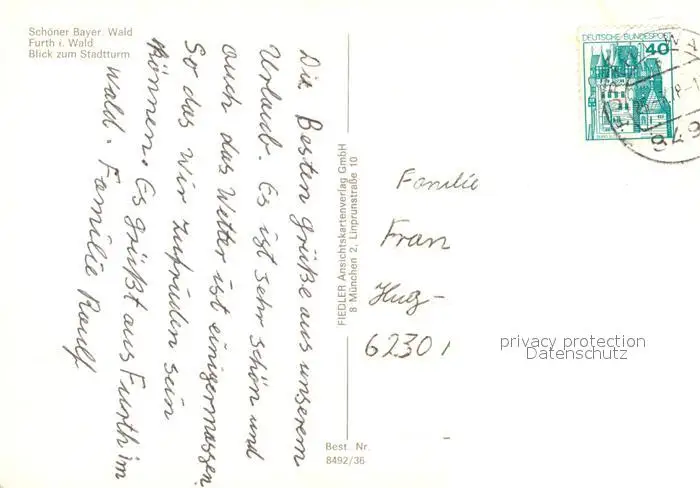 Schöner Bayer. Wald
Furth i. Wald
Blick zum Stadtturm
Die Besten grüße aus unserem
Urlaub. Es ist sehr schön und
auch das Wetter ist einigermassen
So das Wir zufrüden sein
können. Es grüßt aus Furth im
Wald. Familie Raulf
FIEDLER Ansichtskartenverlag GmbH
8 München 2, Linprunstraße 10
Best. Nr.
8492/36
DEUTSCHE BUNDESPOST
40
Familie
Fran
Hug-
6230 1
privacy protection
Datenschutz